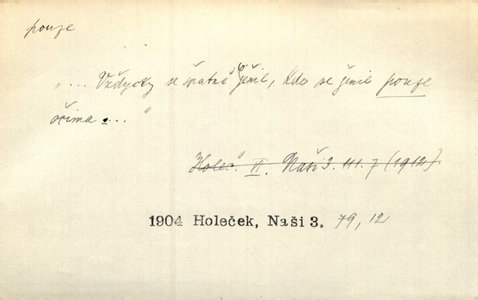 pouze
„... Vždycky se špatně ženil, kdo se ženil pouze
očima ...“
Holeč. II. Naši 3. III. 7 (1912).
1904 Holeček, Naši 3. 79, 12